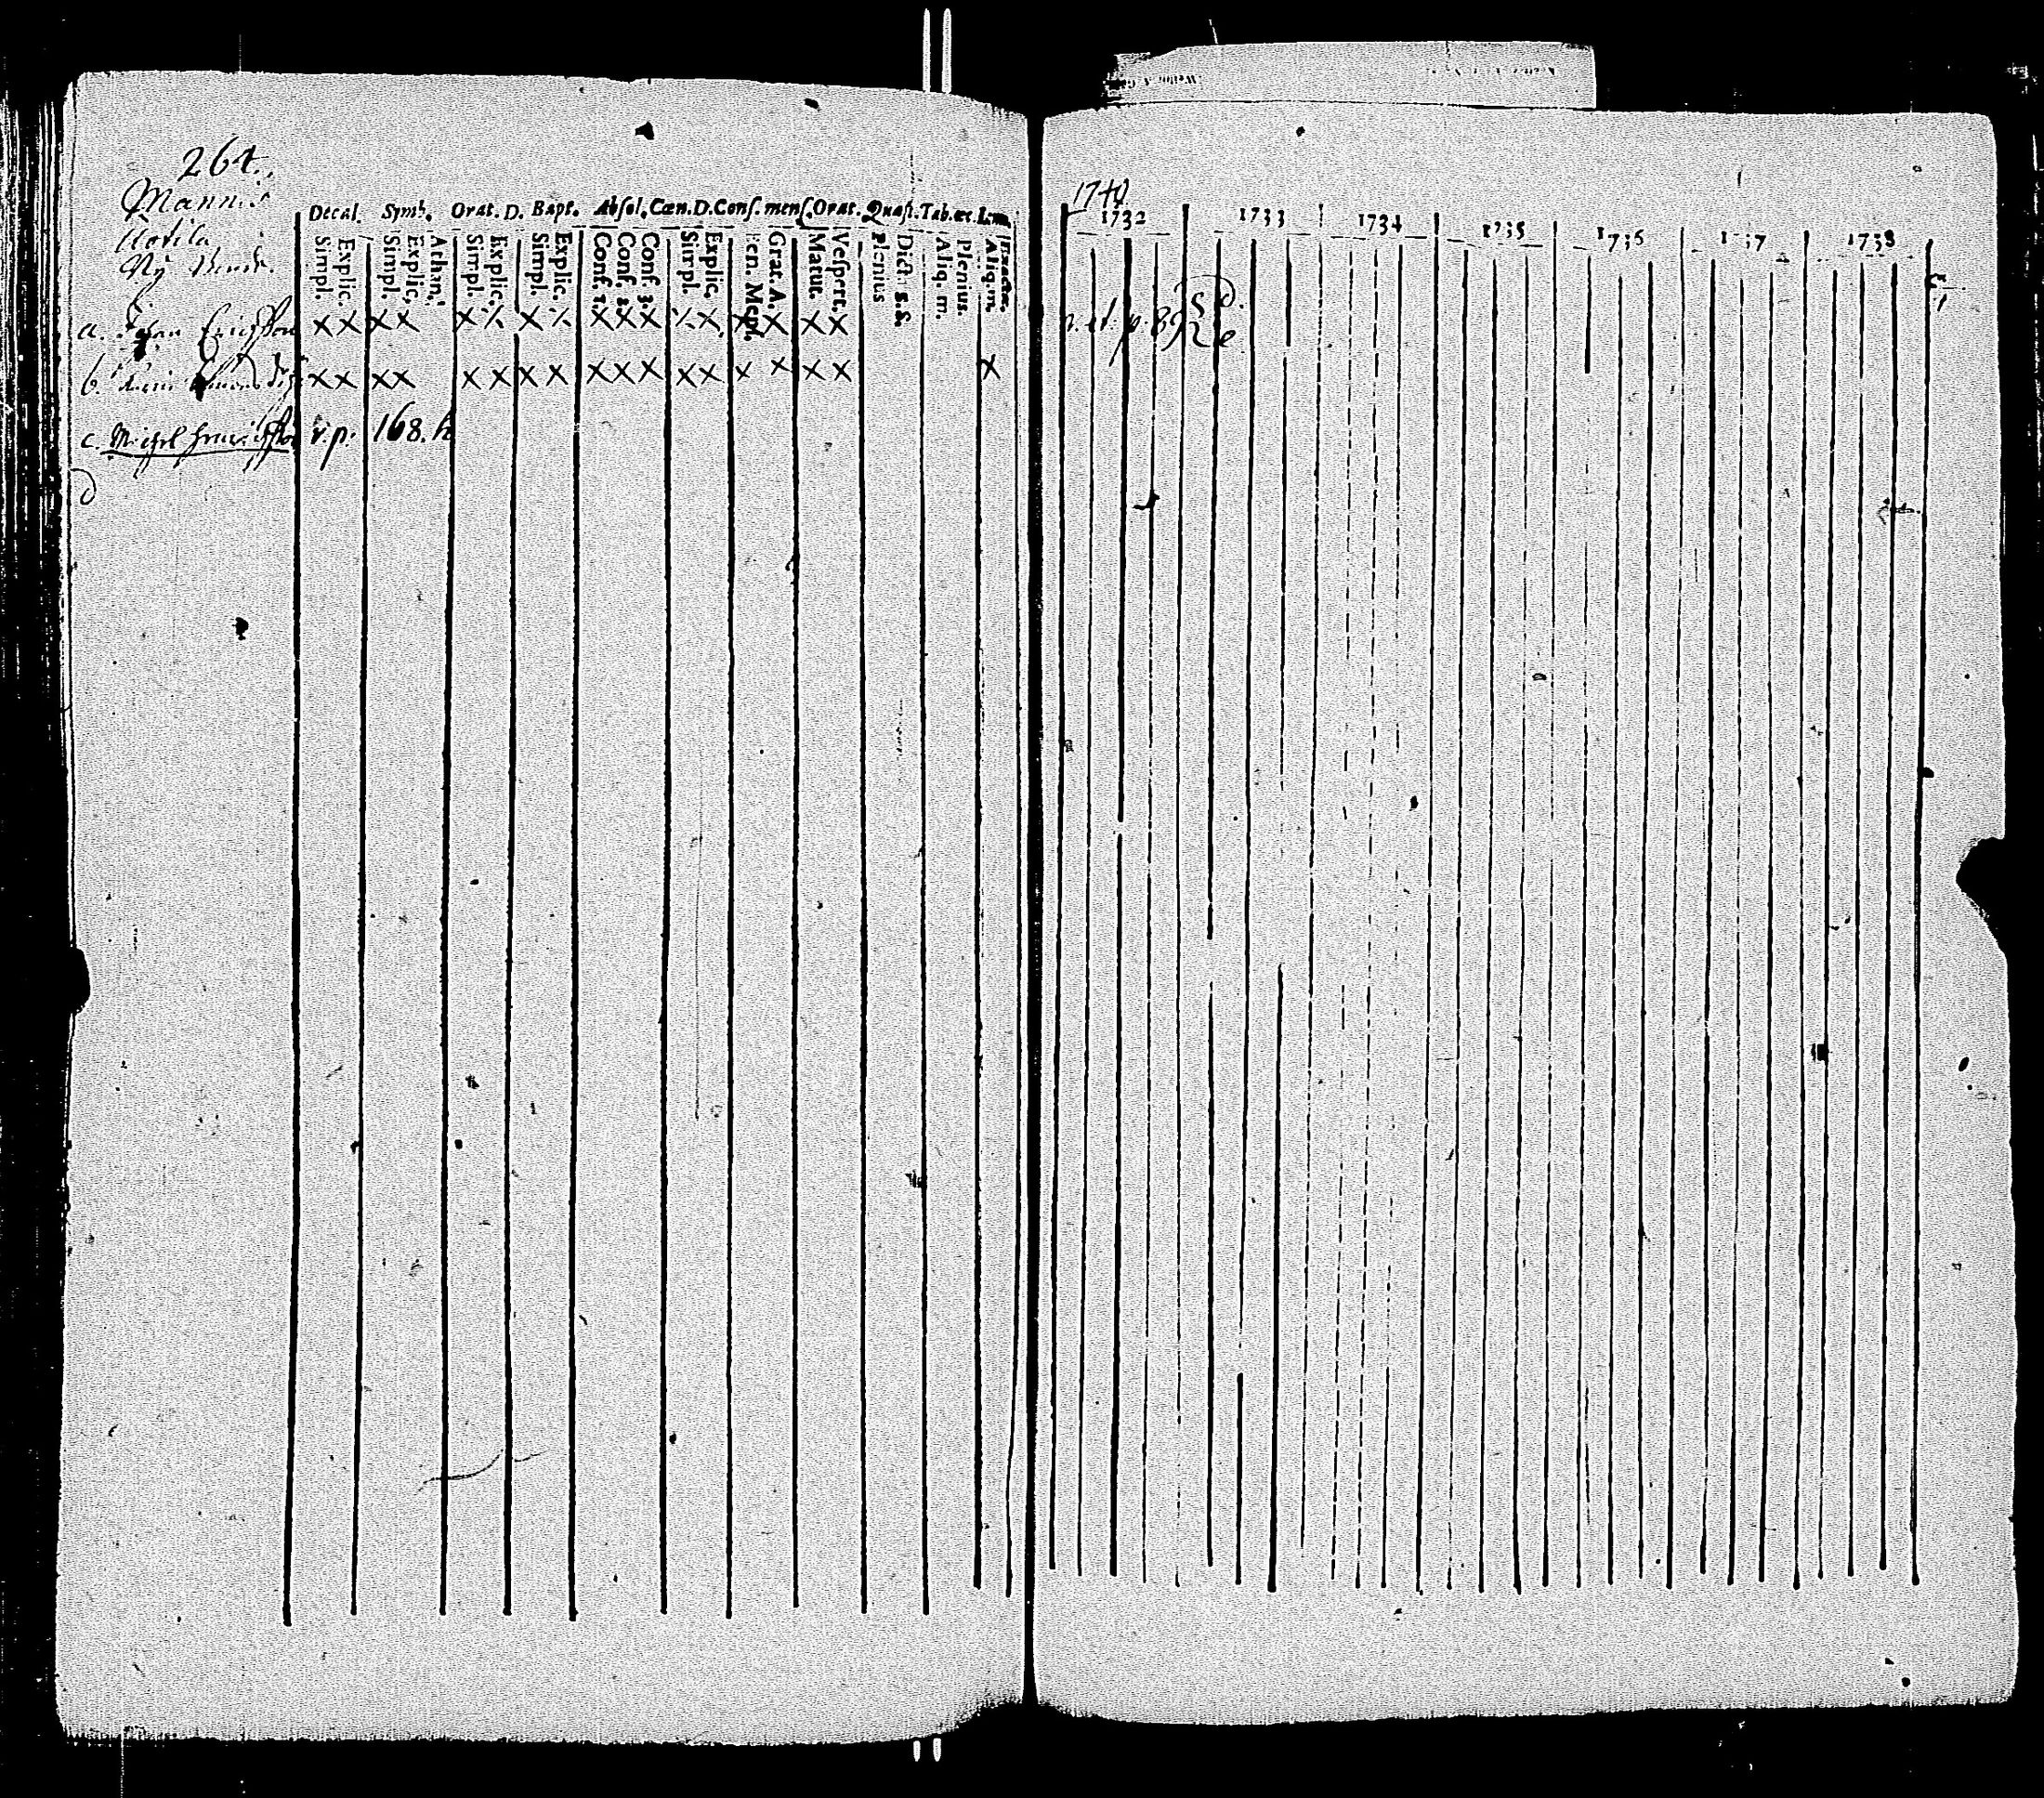 264.
Mannis
Uotila
Ny
Decal. Symb. Orat. D. Bapt. Absol. Cœn. D. Conf. menſ. Orat. Quæſt. Tab. œc.
Simpl. Explic. Simpl. Explic. Athan. Simpl. Explic. Simpl. Explic. Conf. 1. Conf. 2. Conf. 3. Simpl. Explic. Ben. Menſ. Grat. A. Matut. Veſpert. Plenius Dict. S. S. Aliq. m. Plenius. Aliq. m.
a. Johan Erichſſon × × × × × ⁒ × ⁒ × × × ⁒ × × × × ×
b. × × × × × × × × × × × × × × × × × ×
c. Michel v. p. 168. h
d
1740
1732 1733 1734 1735 1736 1737 1738
p. 89 d. e